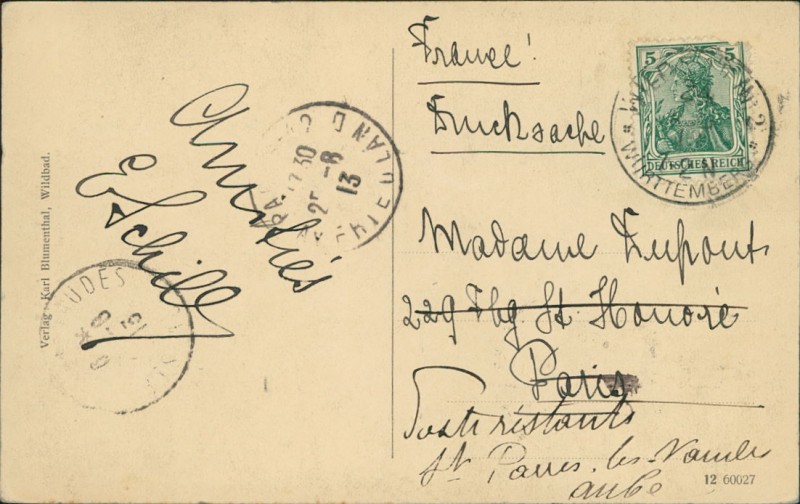 Verlag Karl Blumenthal, Wildbad.
Amitiés
E Schill
France!
Drucksache
5
DEUTSCHES REICH
WÜRTTEMBERG
Madame Dupont
229 Fbg. St. Honoré
Paris
Poste restante
St Parres-les-Vaudes
Aube
17 30
25 - 8
13
UDES
12 60027